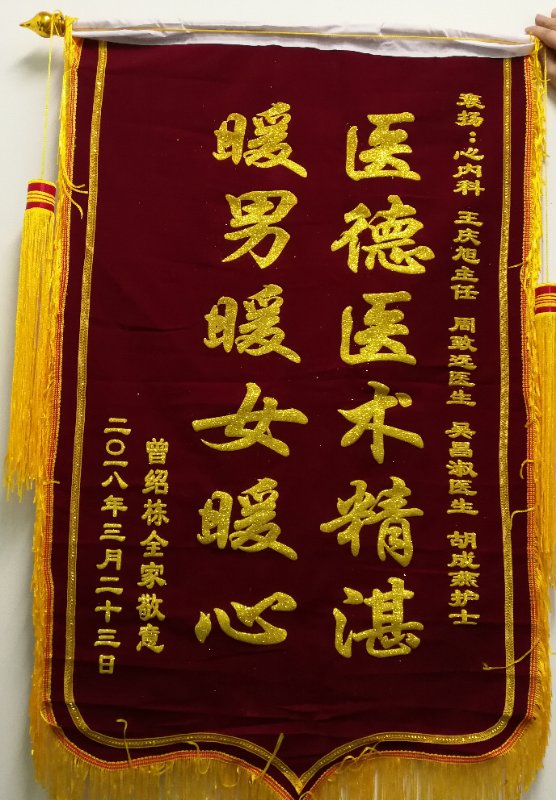 表扬：心内科 王庆旭主任 周敢远医生 吴昌淑医生 胡成燕护士
医德医术精湛
暖男暖女暖心
曾绍栋全家敬意
二〇一八年三月二十三日